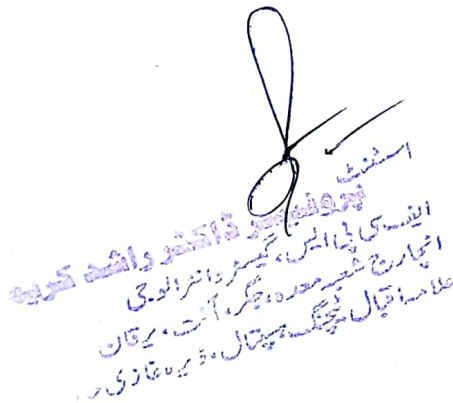 اسسٹنٹ
پروفیسر ڈاکٹر راشد کریم
ایف سی پی ایس، گیسٹروانٹرالوجی
انچارج شعبہ معدہ، جگر، آنت، یرقان
علامہ اقبال ٹیچنگ ہسپتال، ڈیرہ غازی